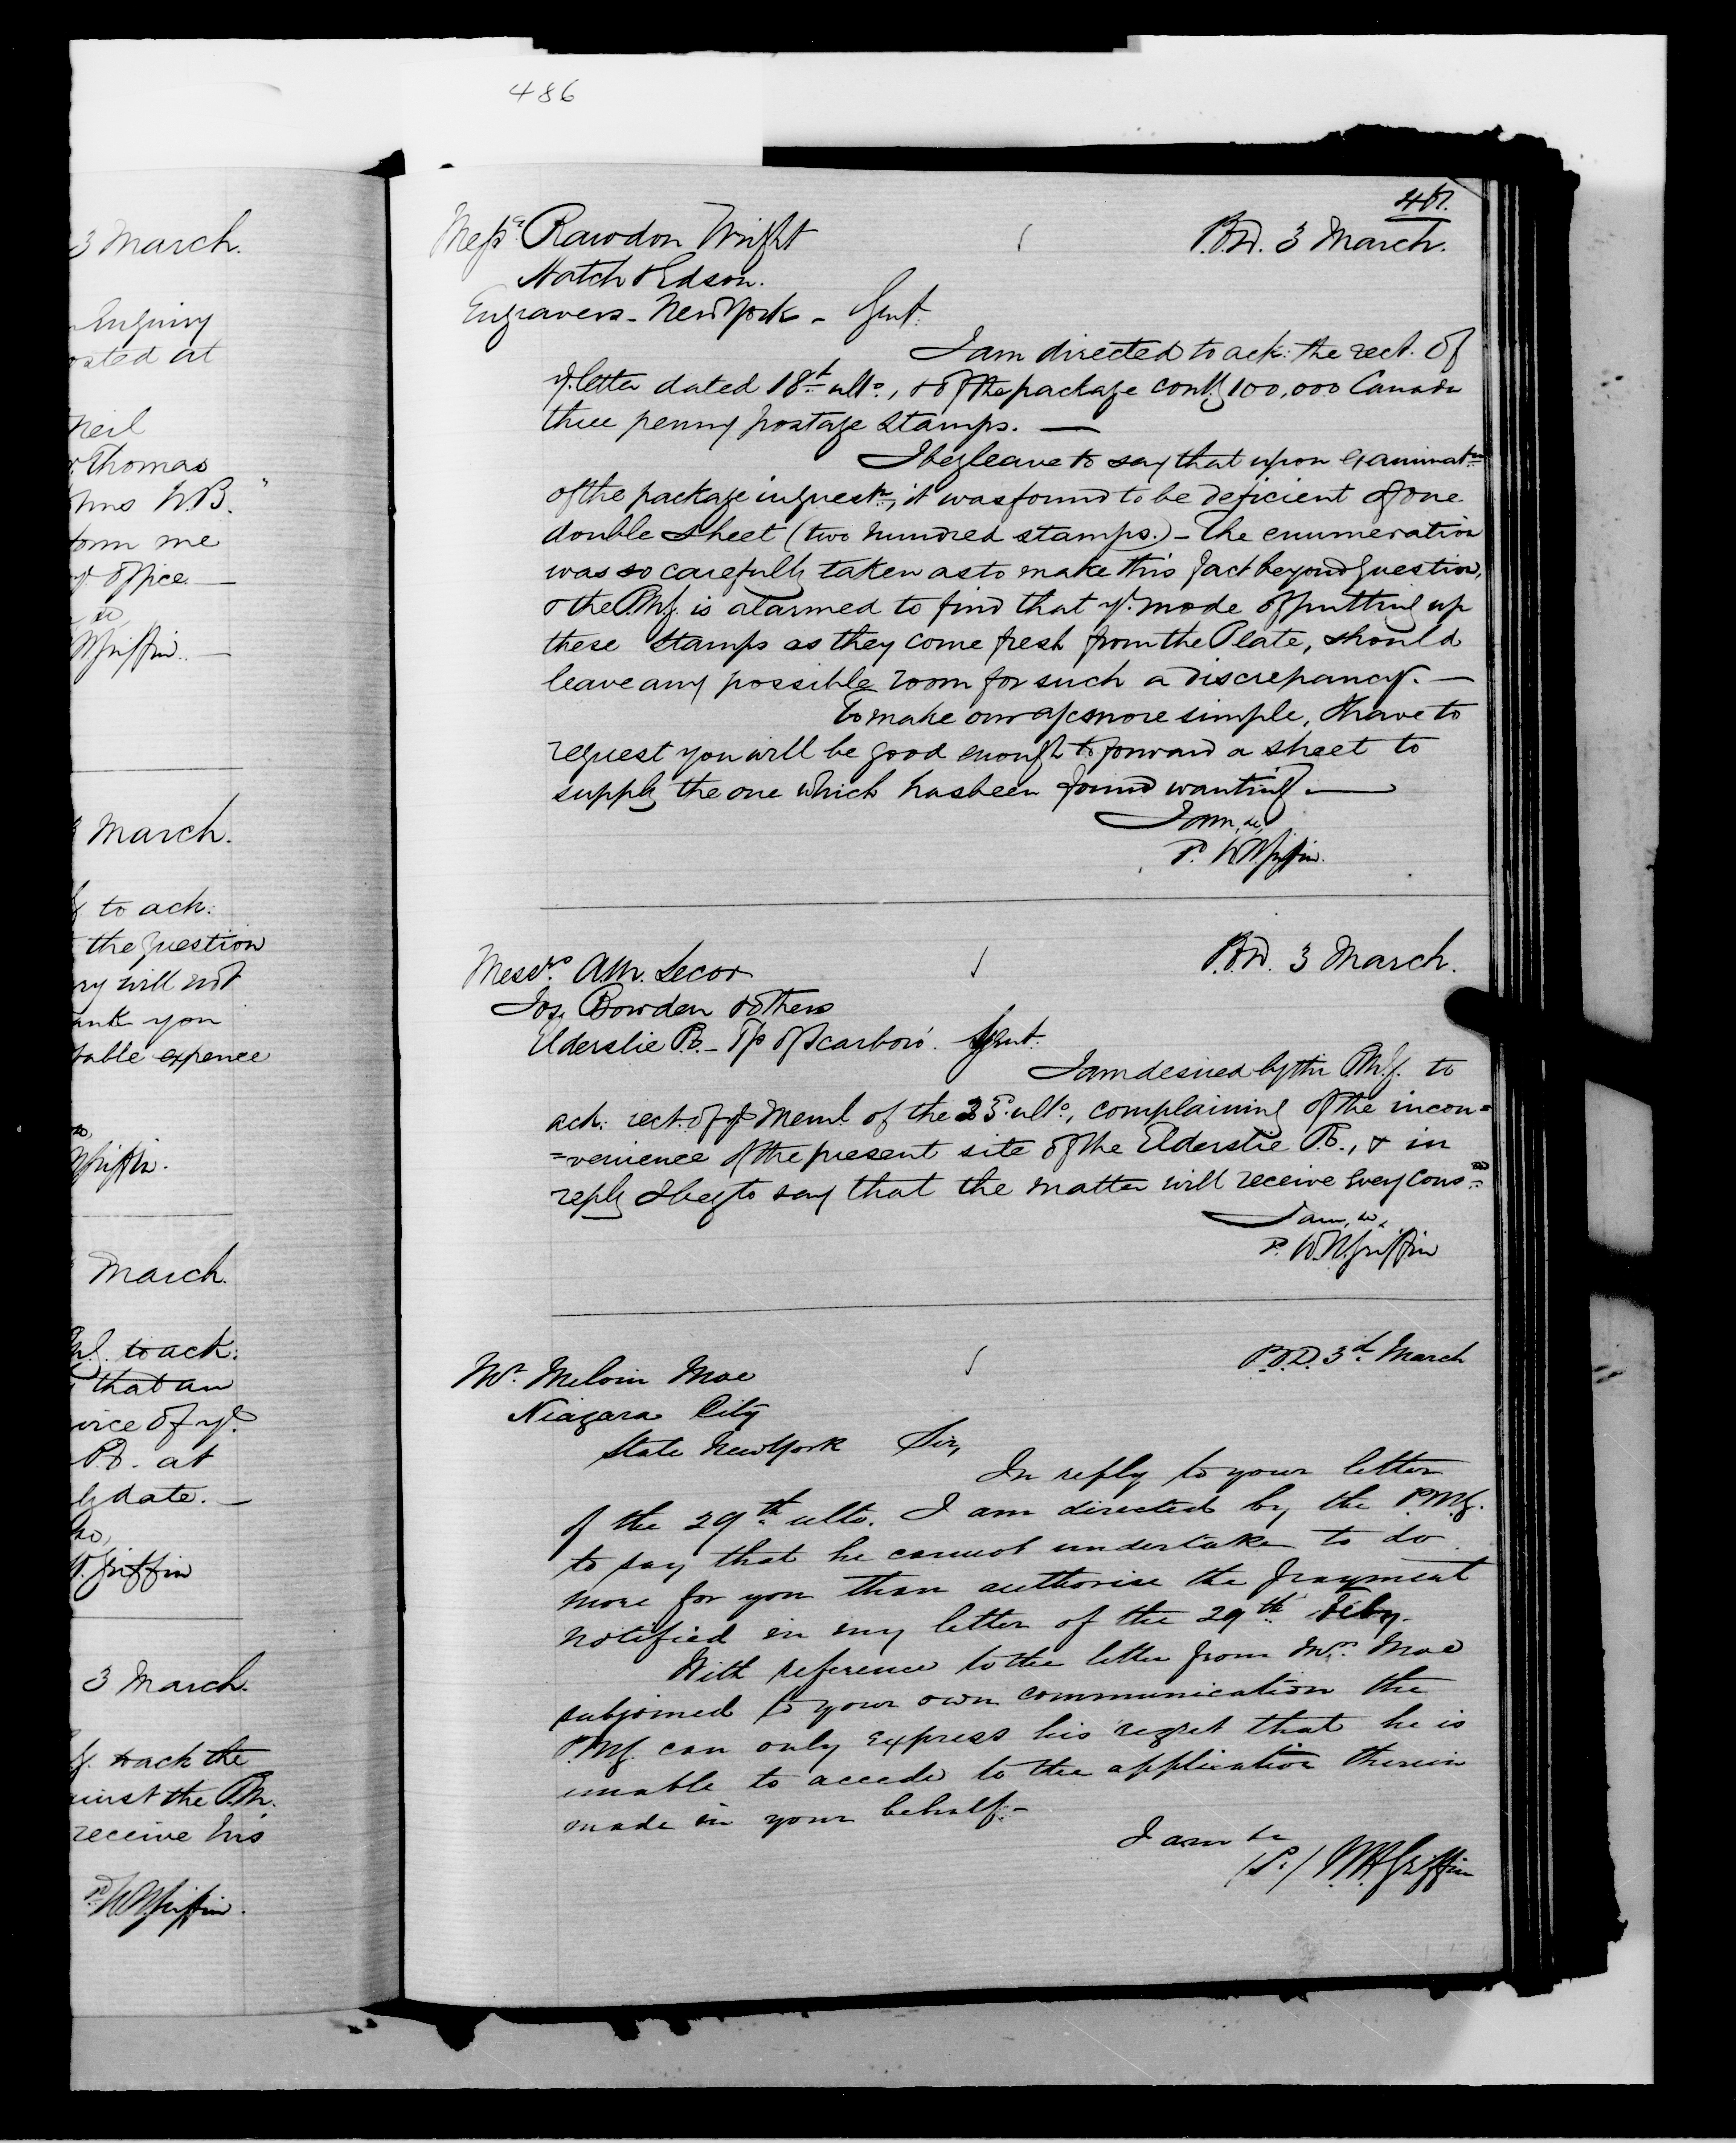 486
3 March.
Enquiry
osted at
Neil
Thomas
N.B.
form me
office —
&c,
Griffin. —
March.
to ack:
the question
ry will not
ank you
table expence
&c,
Griffin.
March.
to ack:
that an
vice of yr.
P.O. at
ly date. —
&c,
Griffin
3 March.
to ack the
ainst the P.M.
receive his
Pd. W.H. Griffin.
Messrs. Rawdon Wright
P.O.D. 3 March.
Hatch & Edson.
Engravers - New York - Gent.
I am directed to ack: the rect. of
yr. letter dated 18th ulto., & of the package contg 100,000 Canada
three penny postage stamps. —
I beg leave to say that upon examinatn
of the package in questn., it was found to be deficient of one
double sheet (two hundred stamps.) - The enumeration
was so carefully taken as to make this fact beyond question,
& the P.M.G. is alarmed to find that yr. mode of putting up
these stamps as they come fresh from the Plate, should
leave any possible room for such a discrepancy. —
To make our a/c more simple, I have to
request you will be good enough to forward a sheet to
supply the one which has been found wanting. —
I am, &c,
P. W.H. Griffin.
Messrs. Am. Secor
P.O.D. 3 March.
Jos. Bowden & others
Elderslie P.O. - Tp of Scarboro'. Gent.
I am desired by the P.M.G. to
ack: rect. of yr Meml. of the 25. ulto., complaining of the incon=
=venience of the present site of the Elderslie P.O., & in
reply I beg to say that the matter will receive every cons=n
I am, &c,
P. W.H. Griffin
Mr. Melvin Moe
P.O.D. 3d. March
Niagara City
State New York Sir,
In reply to your letter
of the 29th ulto. I am directed by the P.M.G.
to say that he cannot undertake to do
more for you than authorise the payment
notified in my letter of the 29th Feby.
With reference to the letter from Mrs. Moe
subjoined to your own communication the
P.M.G. can only express his regret that he is
unable to accede to the application therein
made in your behalf. -
I am &c
(P.) W.H. Griffin